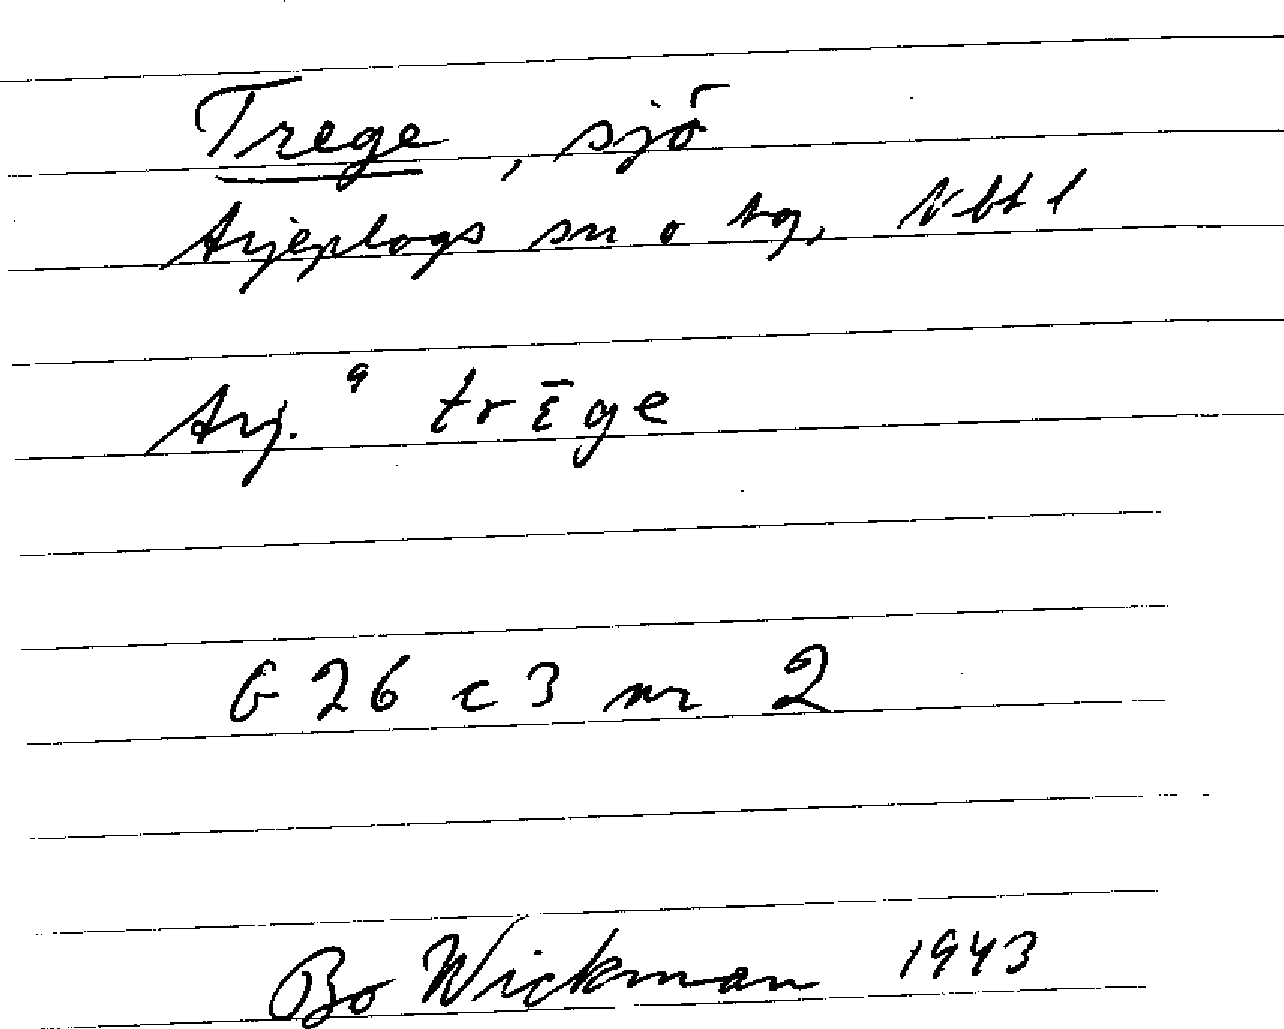 Trege, sjö
Arjeplogs sn o tg, Nbt l
Arj. a trɛ̄ge
G 26 c 3 nr 2
Bo Wickman 1943